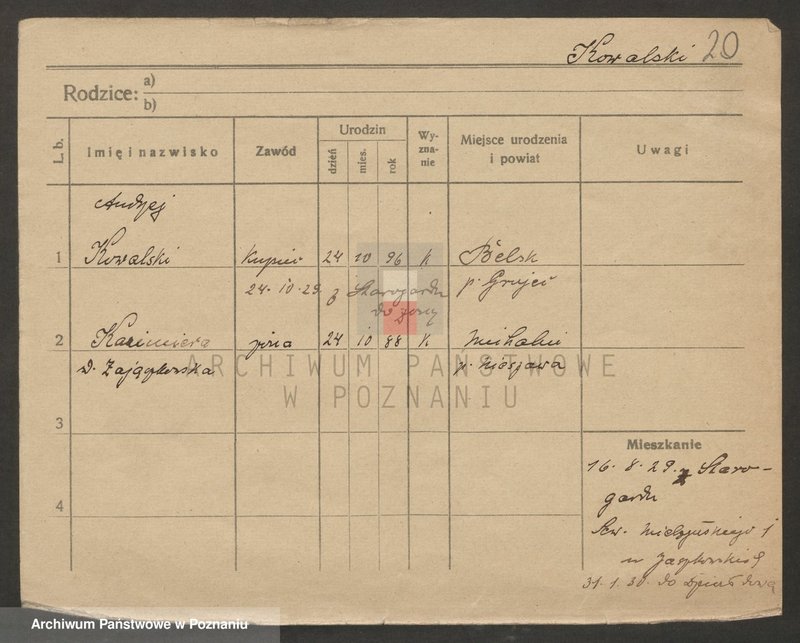 Kowalski 20
Rodzice: a)
b)
L. b. Imię i nazwisko Zawód Urodzin Wy-zna-nie Miejsce urodzenia i powiat Uwagi
dzień mies. rok
Andrzej
1 Kowalski kupiec 24 10 96 k Belsk
24.10.29 z Starogardu p. Grójec
do żony
2 Kazimiera żona 24 10 88 k Michalin
D. Zajączkowska p. Nieszawa
ARCHIWUM PAŃSTWOWE
W POZNANIU
3
Mieszkanie
16.8.29. z Staro-
4 gardu
1
31.1.30. do
Archiwum Państwowe w Poznaniu